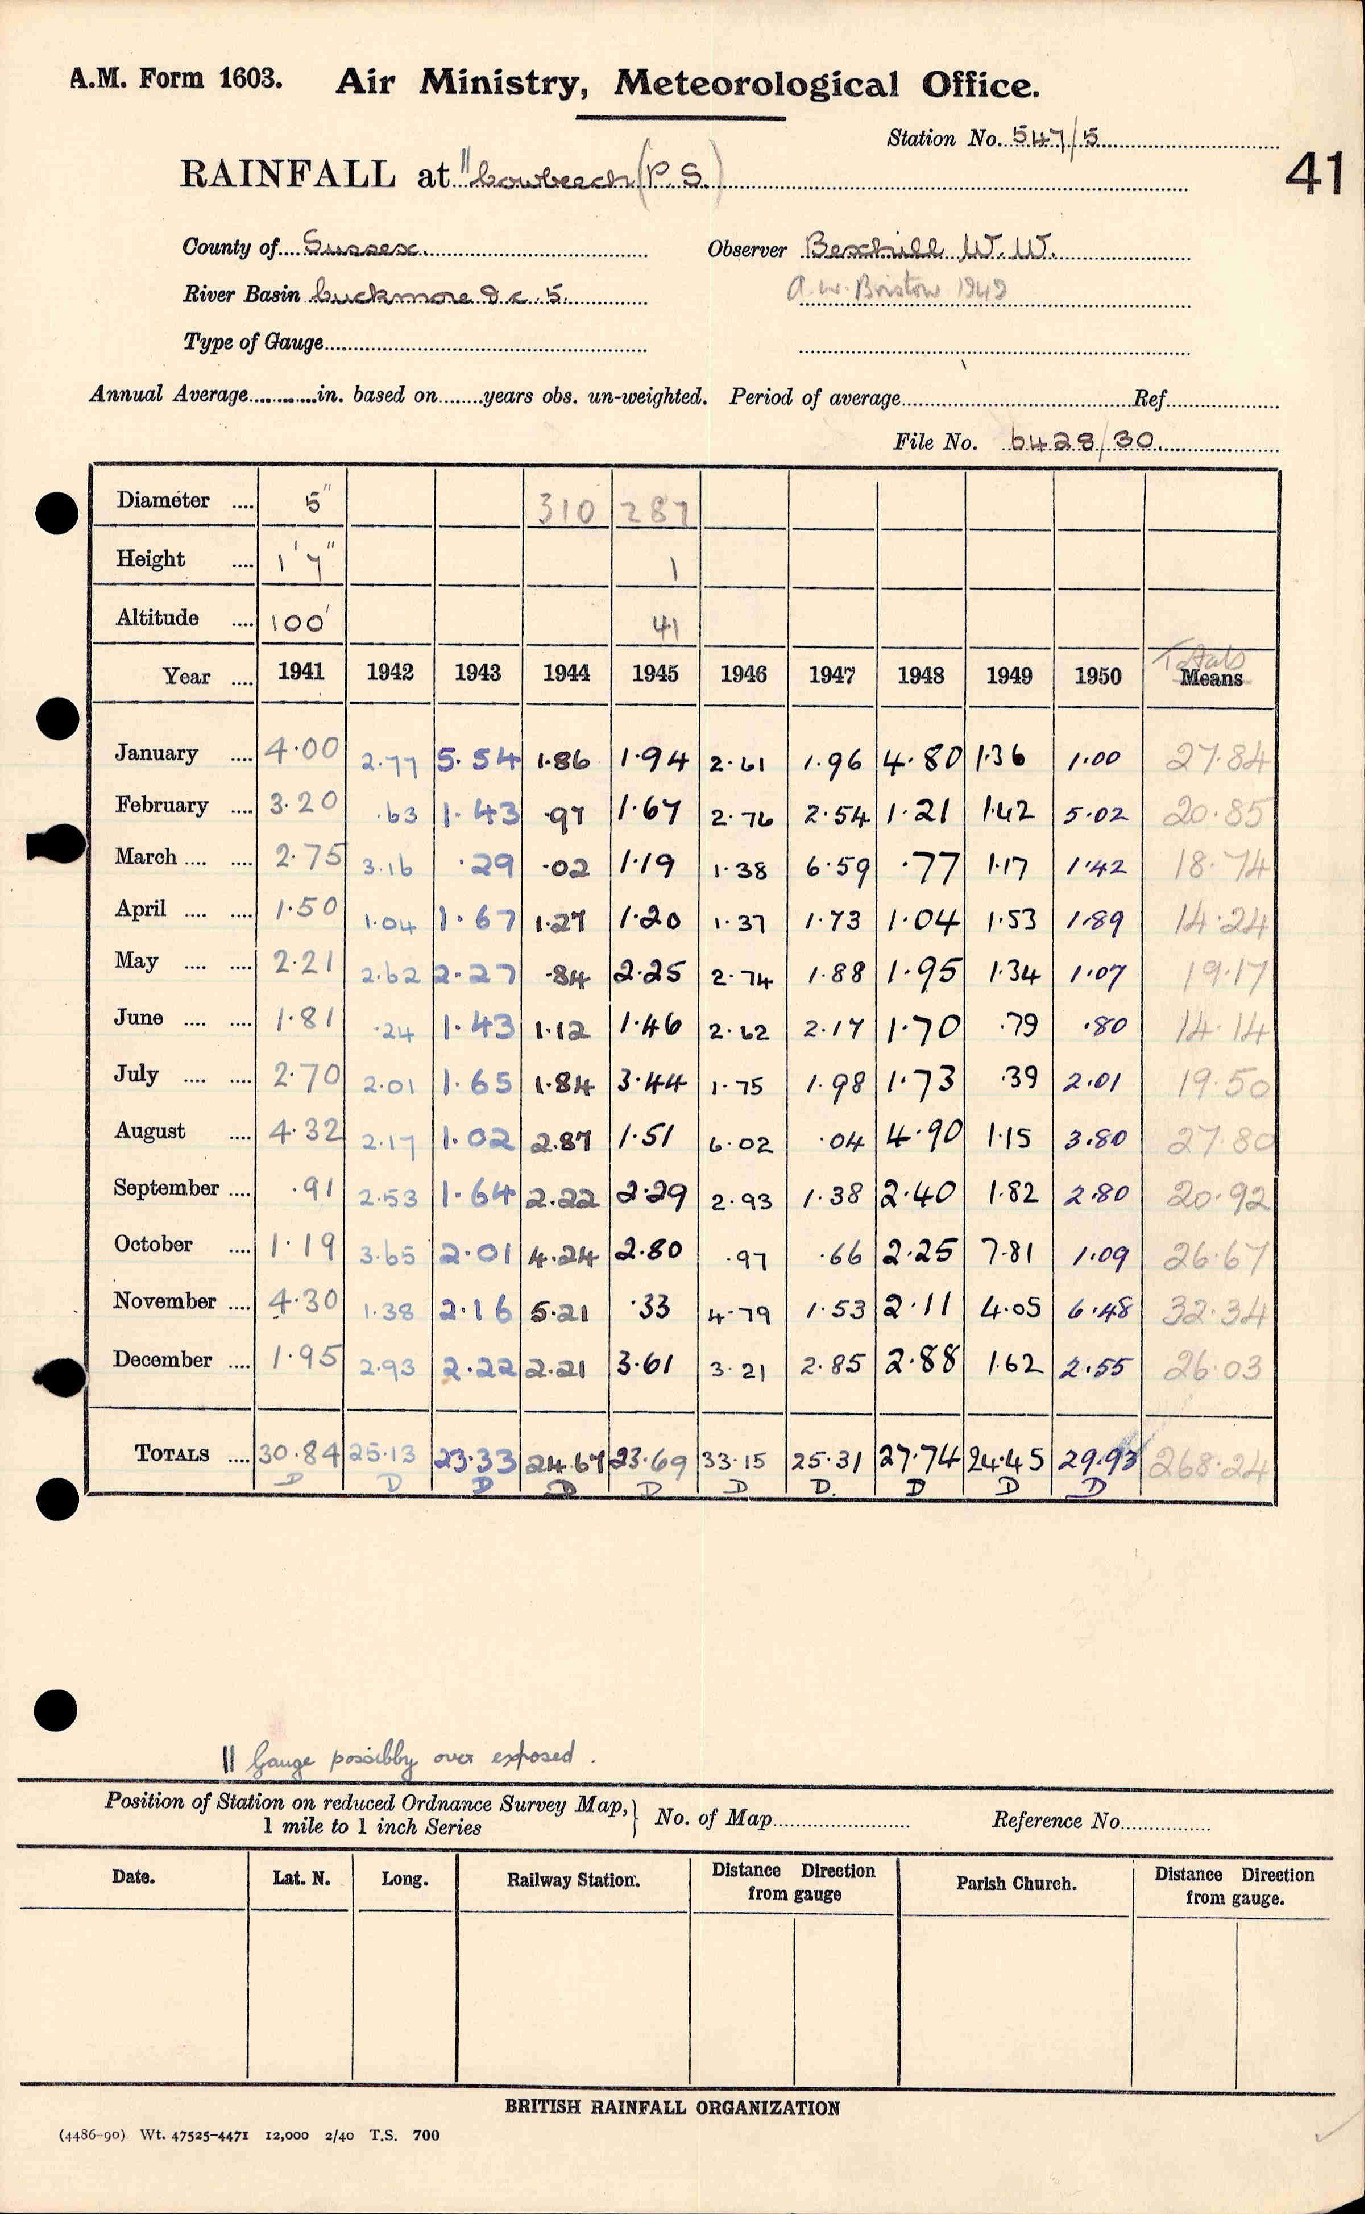 A.M. Form 1603. Air Ministry, Meteorological Office.
Station No. 547/5
41
RAINFALL at "Cowbeech (P.S.)
County of Sussex. Observer Bexhill W.W.
River Basin Cuckmere &c. 5. A.W. Bristow 1949
Type of Gauge
Annual Average in. based on years obs. un-weighted. Period of average Ref
File No. 6428/30
Diameter .... 5" 310 287
Height .... 1' 7" 1
Altitude .... 100' 41
Totals
Year .... 1941 1942 1943 1944 1945 1946 1947 1948 1949 1950 Means
January .... 4.00 2.77 5.54 1.86 1.94 2.61 1.96 4.80 1.36 1.00 27.84
February .... 3.20 .63 1.43 .97 1.67 2.76 2.54 1.21 1.42 5.02 20.85
March .... .... 2.75 3.16 .29 .02 1.19 1.38 6.59 .77 1.17 1.42 18.74
April .... .... 1.50 1.04 1.67 1.27 1.20 1.37 1.73 1.04 1.53 1.89 14.24
May .... .... 2.21 2.62 2.27 .84 2.25 2.74 1.88 1.95 1.34 1.07 19.17
June .... .... 1.81 .24 1.43 1.12 1.46 2.62 2.17 1.70 .79 .80 14.14
July .... .... 2.70 2.01 1.65 1.84 3.44 1.75 1.98 1.73 .39 2.01 19.50
August .... 4.32 2.17 1.02 2.87 1.51 6.02 .04 4.90 1.15 3.80 27.80
September .... .91 2.53 1.64 2.22 2.29 2.93 1.38 2.40 1.82 2.80 20.92
October .... 1.19 3.65 2.01 4.24 2.80 .97 .66 2.25 7.81 1.09 26.67
November .... 4.30 1.38 2.16 5.21 .33 4.79 1.53 2.11 4.05 6.48 32.34
December .... 1.95 2.93 2.22 2.21 3.61 3.21 2.85 2.88 1.62 2.55 26.03
TOTALS .... 30.84 25.13 23.33 24.67 23.69 33.15 25.31 27.74 24.45 29.93 268.24
D D D D D D D. D D D
|| Gauge possibly over exposed.
Position of Station on reduced Ordnance Survey Map, } No. of Map Reference No.
1 mile to 1 inch Series
Date. Lat. N. Long. Railway Station. Distance Direction from gauge Parish Church. Distance Direction from gauge.
BRITISH RAINFALL ORGANIZATION
(4486-90) Wt. 47525-4471 12,000 2/40 T.S. 700